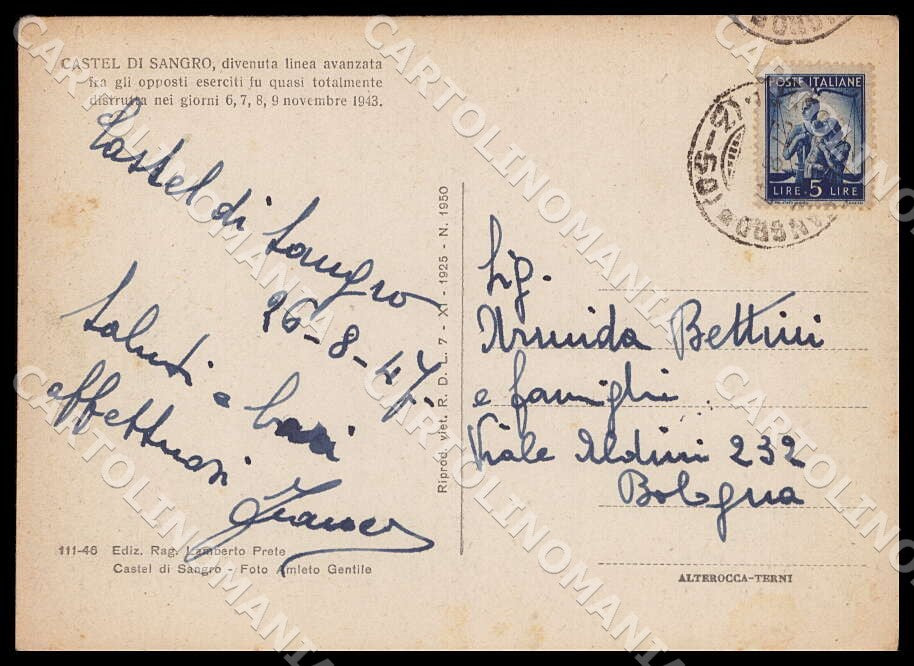 CASTEL DI SANGRO, divenuta linea avanzata
fra gli opposti eserciti fu quasi totalmente
distrutta nei giorni 6, 7, 8, 9 novembre 1943.
Castel di Sangro
26-8-47.
Saluti e baci
affettuosi
Franco
111-46 Ediz. Rag. Lamberto Prete
Castel di Sangro - Foto Amleto Gentile
Riprod. viet. R. D. L. 7 - XI - 1925 - N. 1950
POSTE ITALIANE
LIRE 5 LIRE
Sig.
Armida Bettini
e famiglia
Viale Aldini 232
Bologna
ALTEROCCA-TERNI
CARTOLINOMANIA